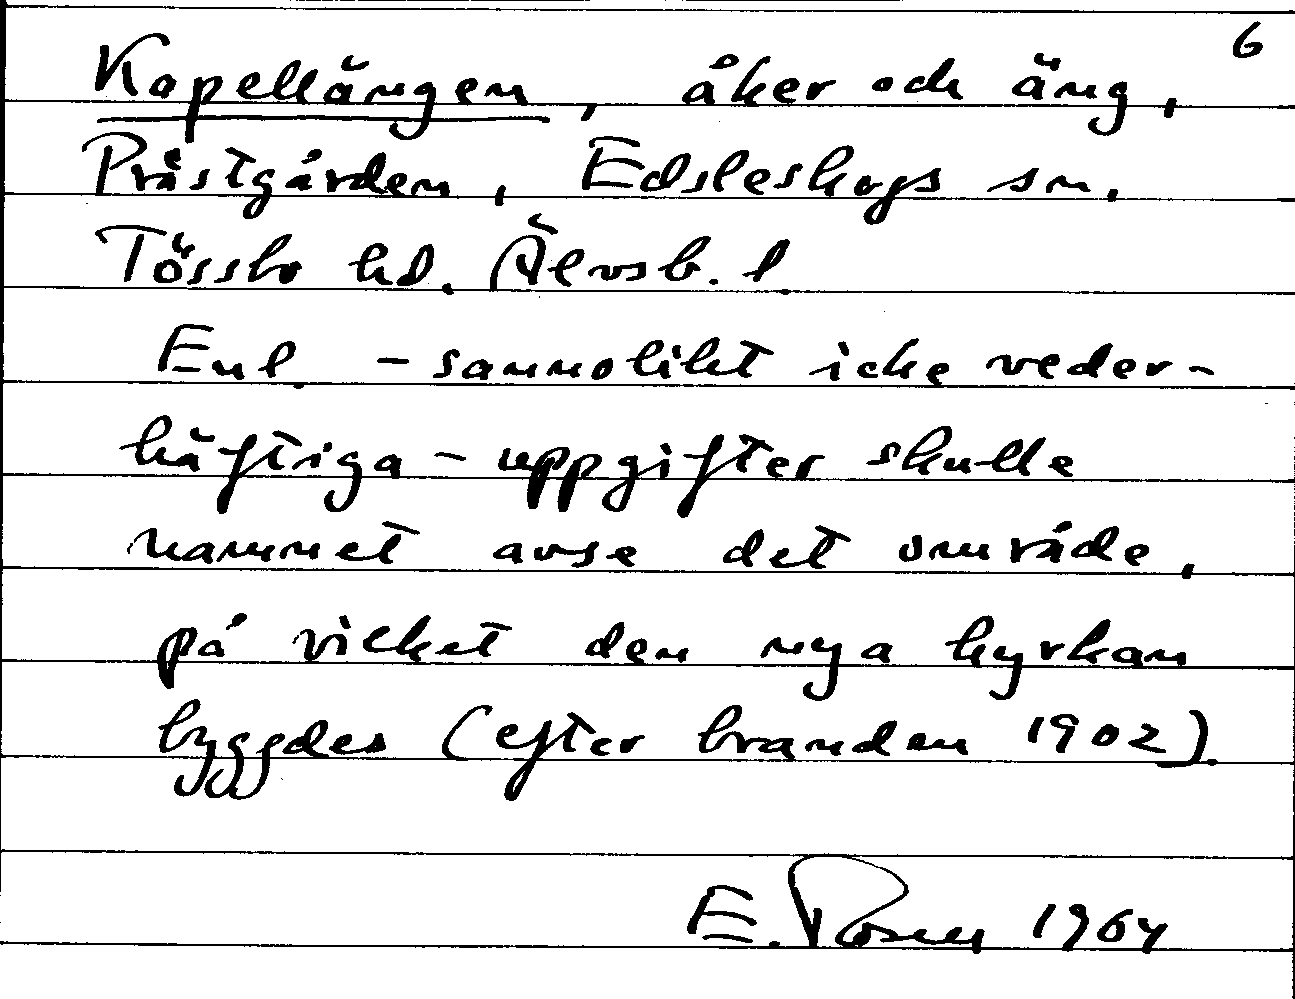 6
Kapellängen, åker och äng,
Prästgården, Edsleskogs sn.
Tössbo hd. Älvsb. l.
Enl. - sannolikt icke veder-
häftiga - uppgifter skulle
namnet avse det område,
på vilket den nya kyrkan
byggdes (efter branden 1902).
E. Rosen 1964